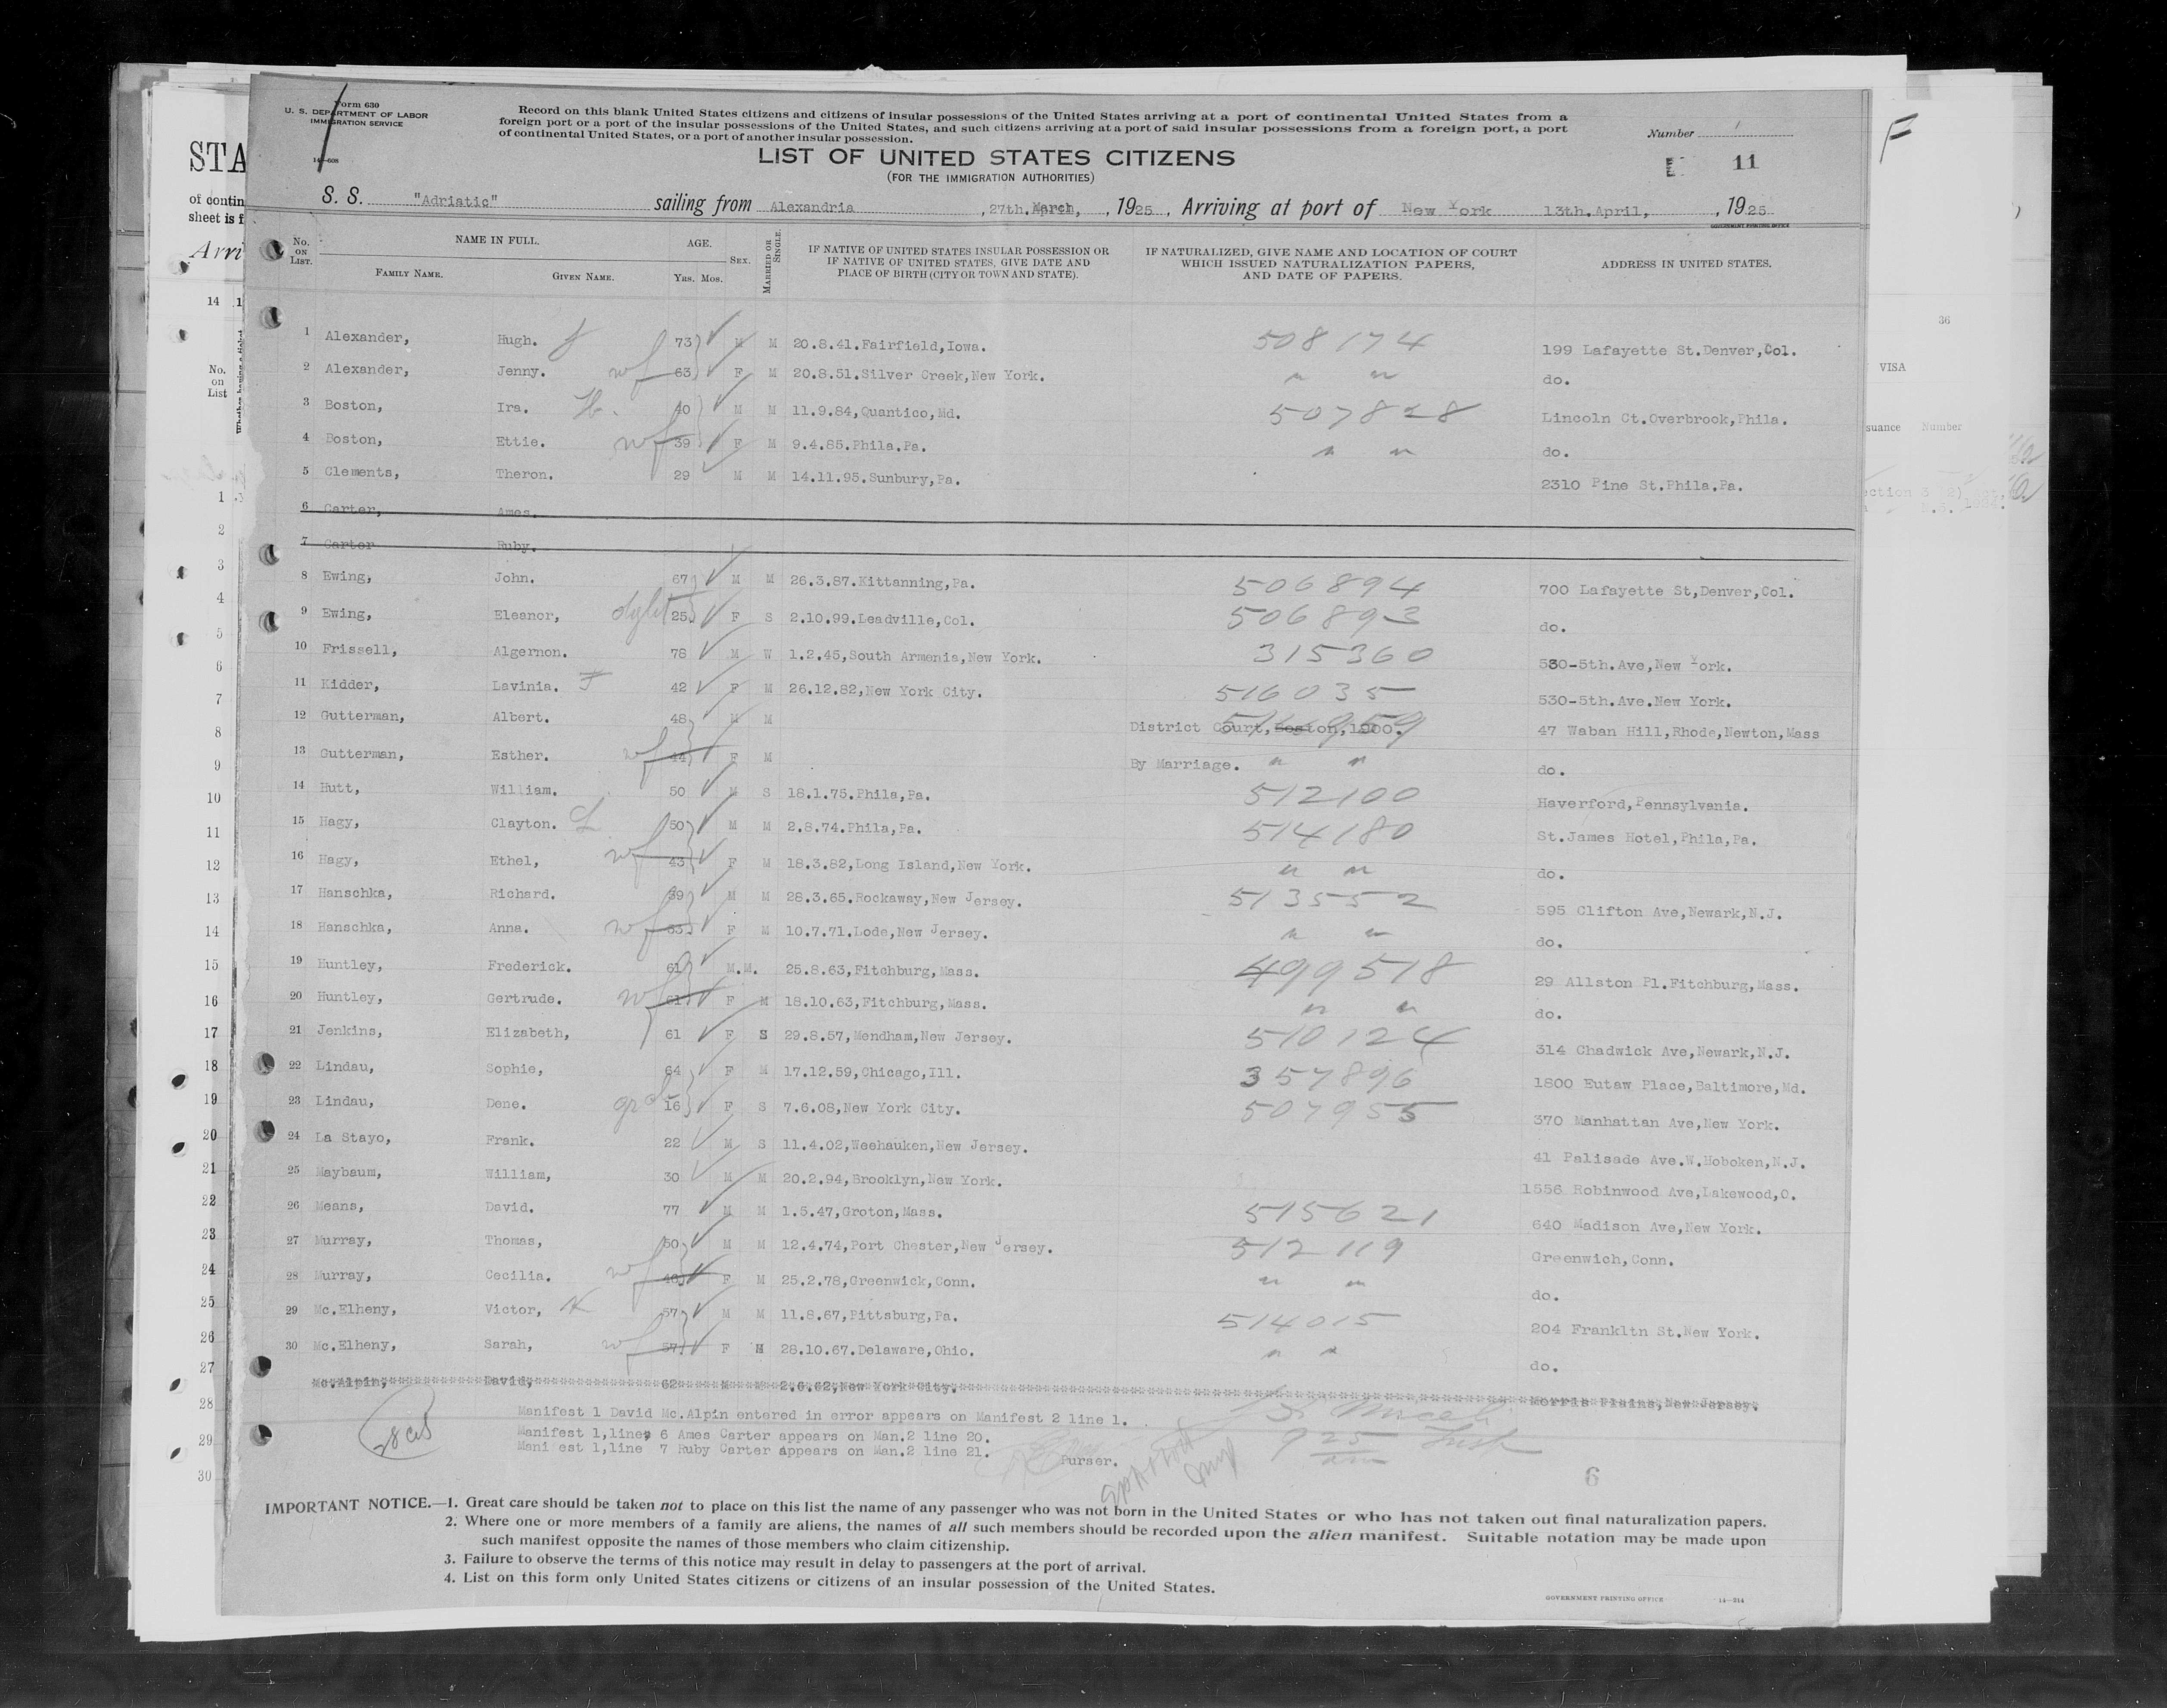 Form 630
U. S. DEPARTMENT OF LABOR
IMMIGRATION SERVICE
14—608
Record on this blank United States citizens and citizens of insular possessions of the United States arriving at a port of continental United States from a
foreign port or a port of the insular possessions of the United States, and such citizens arriving at a port of said insular possessions from a foreign port, a port
of continental United States, or a port of another insular possession.
Number 1
11
LIST OF UNITED STATES CITIZENS
(FOR THE IMMIGRATION AUTHORITIES)
S. S. "Adriatic" sailing from Alexandria , 27th. March, , 1925 , Arriving at port of New York 13th.April, , 1925
GOVERNMENT PRINTING OFFICE
No. ON LIST. NAME IN FULL. FAMILY NAME. GIVEN NAME. AGE. YRS. MOS. SEX. MARRIED OR SINGLE. IF NATIVE OF UNITED STATES INSULAR POSSESSION OR IF NATIVE OF UNITED STATES, GIVE DATE AND PLACE OF BIRTH (CITY OR TOWN AND STATE). IF NATURALIZED, GIVE NAME AND LOCATION OF COURT WHICH ISSUED NATURALIZATION PAPERS, AND DATE OF PAPERS. ADDRESS IN UNITED STATES.
1 Alexander, Hugh. 73 M M 20.8.41.Fairfield,Iowa. 508174 199 Lafayette St.Denver,Col.
2 Alexander, Jenny. wf 63 F M 20.8.51.Silver Creek,New York. " " do.
3 Boston, Ira. H. 40 M M 11.9.84,Quantico,Md. 507828 Lincoln Ct.Overbrook,Phila.
4 Boston, Ettie. wf 39 F M 9.4.85.Phila,Pa. " " do.
5 Clements, Theron. 29 M M 14.11.95.Sunbury,Pa. 2310 Pine St.Phila.Pa.
6 Carter, Ames.
7 Carter Ruby.
8 Ewing, John. 67 M M 26.3.87.Kittanning,Pa. 506894 700 Lafayette St,Denver,Col.
9 Ewing, Eleanor, 25 F S 2.10.99.Leadville,Col. 506893 do.
10 Frissell, Algernon. 78 M W 1.2.45,South Armenia,New York. 315360 530-5th.Ave,New York.
11 Kidder, Lavinia. F 42 F M 26.12.82,New York City. 516035 530-5th.Ave.New York.
12 Gutterman, Albert. 48 M M District Court,Boston,1900. 47 Waban Hill,Rhode,Newton,Mass
13 Gutterman, Esther. wf 44 F M By Marriage. " " do.
14 Hutt, William. 50 M S 18.1.75.Phila,Pa. 512100 Haverford,Pennsylvania.
15 Hagy, Clayton. L 50 M M 2.8.74.Phila,Pa. 514180 St.James Hotel,Phila,Pa.
16 Hagy, Ethel, wf 43 F M 18.3.82,Long Island,New York. " " do.
17 Hanschka, Richard. 59 M M 28.3.65.Rockaway,New Jersey. 513552 595 Clifton Ave,Newark,N.J.
18 Hanschka, Anna. wf 53 F M 10.7.71.Lode,New Jersey. " " do.
19 Huntley, Frederick. 61 M.M. 25.8.63,Fitchburg,Mass. 499518 29 Allston Pl.Fitchburg,Mass.
20 Huntley, Gertrude. wf 61 F M 18.10.63,Fitchburg,Mass. " " do.
21 Jenkins, Elizabeth, 61 F S 29.8.57,Mendham,New Jersey. 510124 314 Chadwick Ave,Newark,N.J.
22 Lindau, Sophie, 64 F M 17.12.59,Chicago,Ill. 357896 1800 Eutaw Place,Baltimore,Md.
23 Lindau, Dene. 16 F S 7.6.08,New York City. 507955 370 Manhattan Ave,New York.
24 La Stayo, Frank. 22 M S 11.4.02,Weehauken,New Jersey. 41 Palisade Ave.W.Hoboken,N.J.
25 Maybaum, William, 30 M M 20.2.94,Brooklyn,New York. 1556 Robinwood Ave,Lakewood,O.
26 Means, David. 77 M M 1.5.47,Groton,Mass. 515621 640 Madison Ave,New York.
27 Murray, Thomas, 50 M M 12.4.74,Port Chester,New Jersey. 512119 Greenwich,Conn.
28 Murray, Cecilia. wf 46 F M 25.2.78,Greenwick,Conn. " " do.
29 Mc.Elheny, Victor, 57 M M 11.8.67,Pittsburg,Pa. 514015 204 Frankltn St.New York.
30 Mc.Elheny, Sarah, wf 57 F M 28.10.67.Delaware,Ohio. " " do.
Mc.Alpin, David, 62 M M 2.6.62,New York City. Morris Plains,New Jersey.
Manifest 1 David Mc.Alpin entered in error appears on Manifest 2 line 1.
Manifest 1,line, 6 Ames Carter appears on Man.2 line 20.
Mani est 1,line 7 Ruby Carter appears on Man.2 line 21.
Purser.
925
am
6
IMPORTANT NOTICE.—1. Great care should be taken not to place on this list the name of any passenger who was not born in the United States or who has not taken out final naturalization papers.
2. Where one or more members of a family are aliens, the names of all such members should be recorded upon the alien manifest. Suitable notation may be made upon
such manifest opposite the names of those members who claim citizenship.
3. Failure to observe the terms of this notice may result in delay to passengers at the port of arrival.
4. List on this form only United States citizens or citizens of an insular possession of the United States.
GOVERNMENT PRINTING OFFICE 14—314
STA
of contin
sheet is f
Arri
14
No.
on
List
1
2
3
4
5
6
7
8
9
10
11
12
13
14
15
16
17
18
19
20
21
22
23
24
25
26
27
28
29
30
F
36
VISA
suance Number